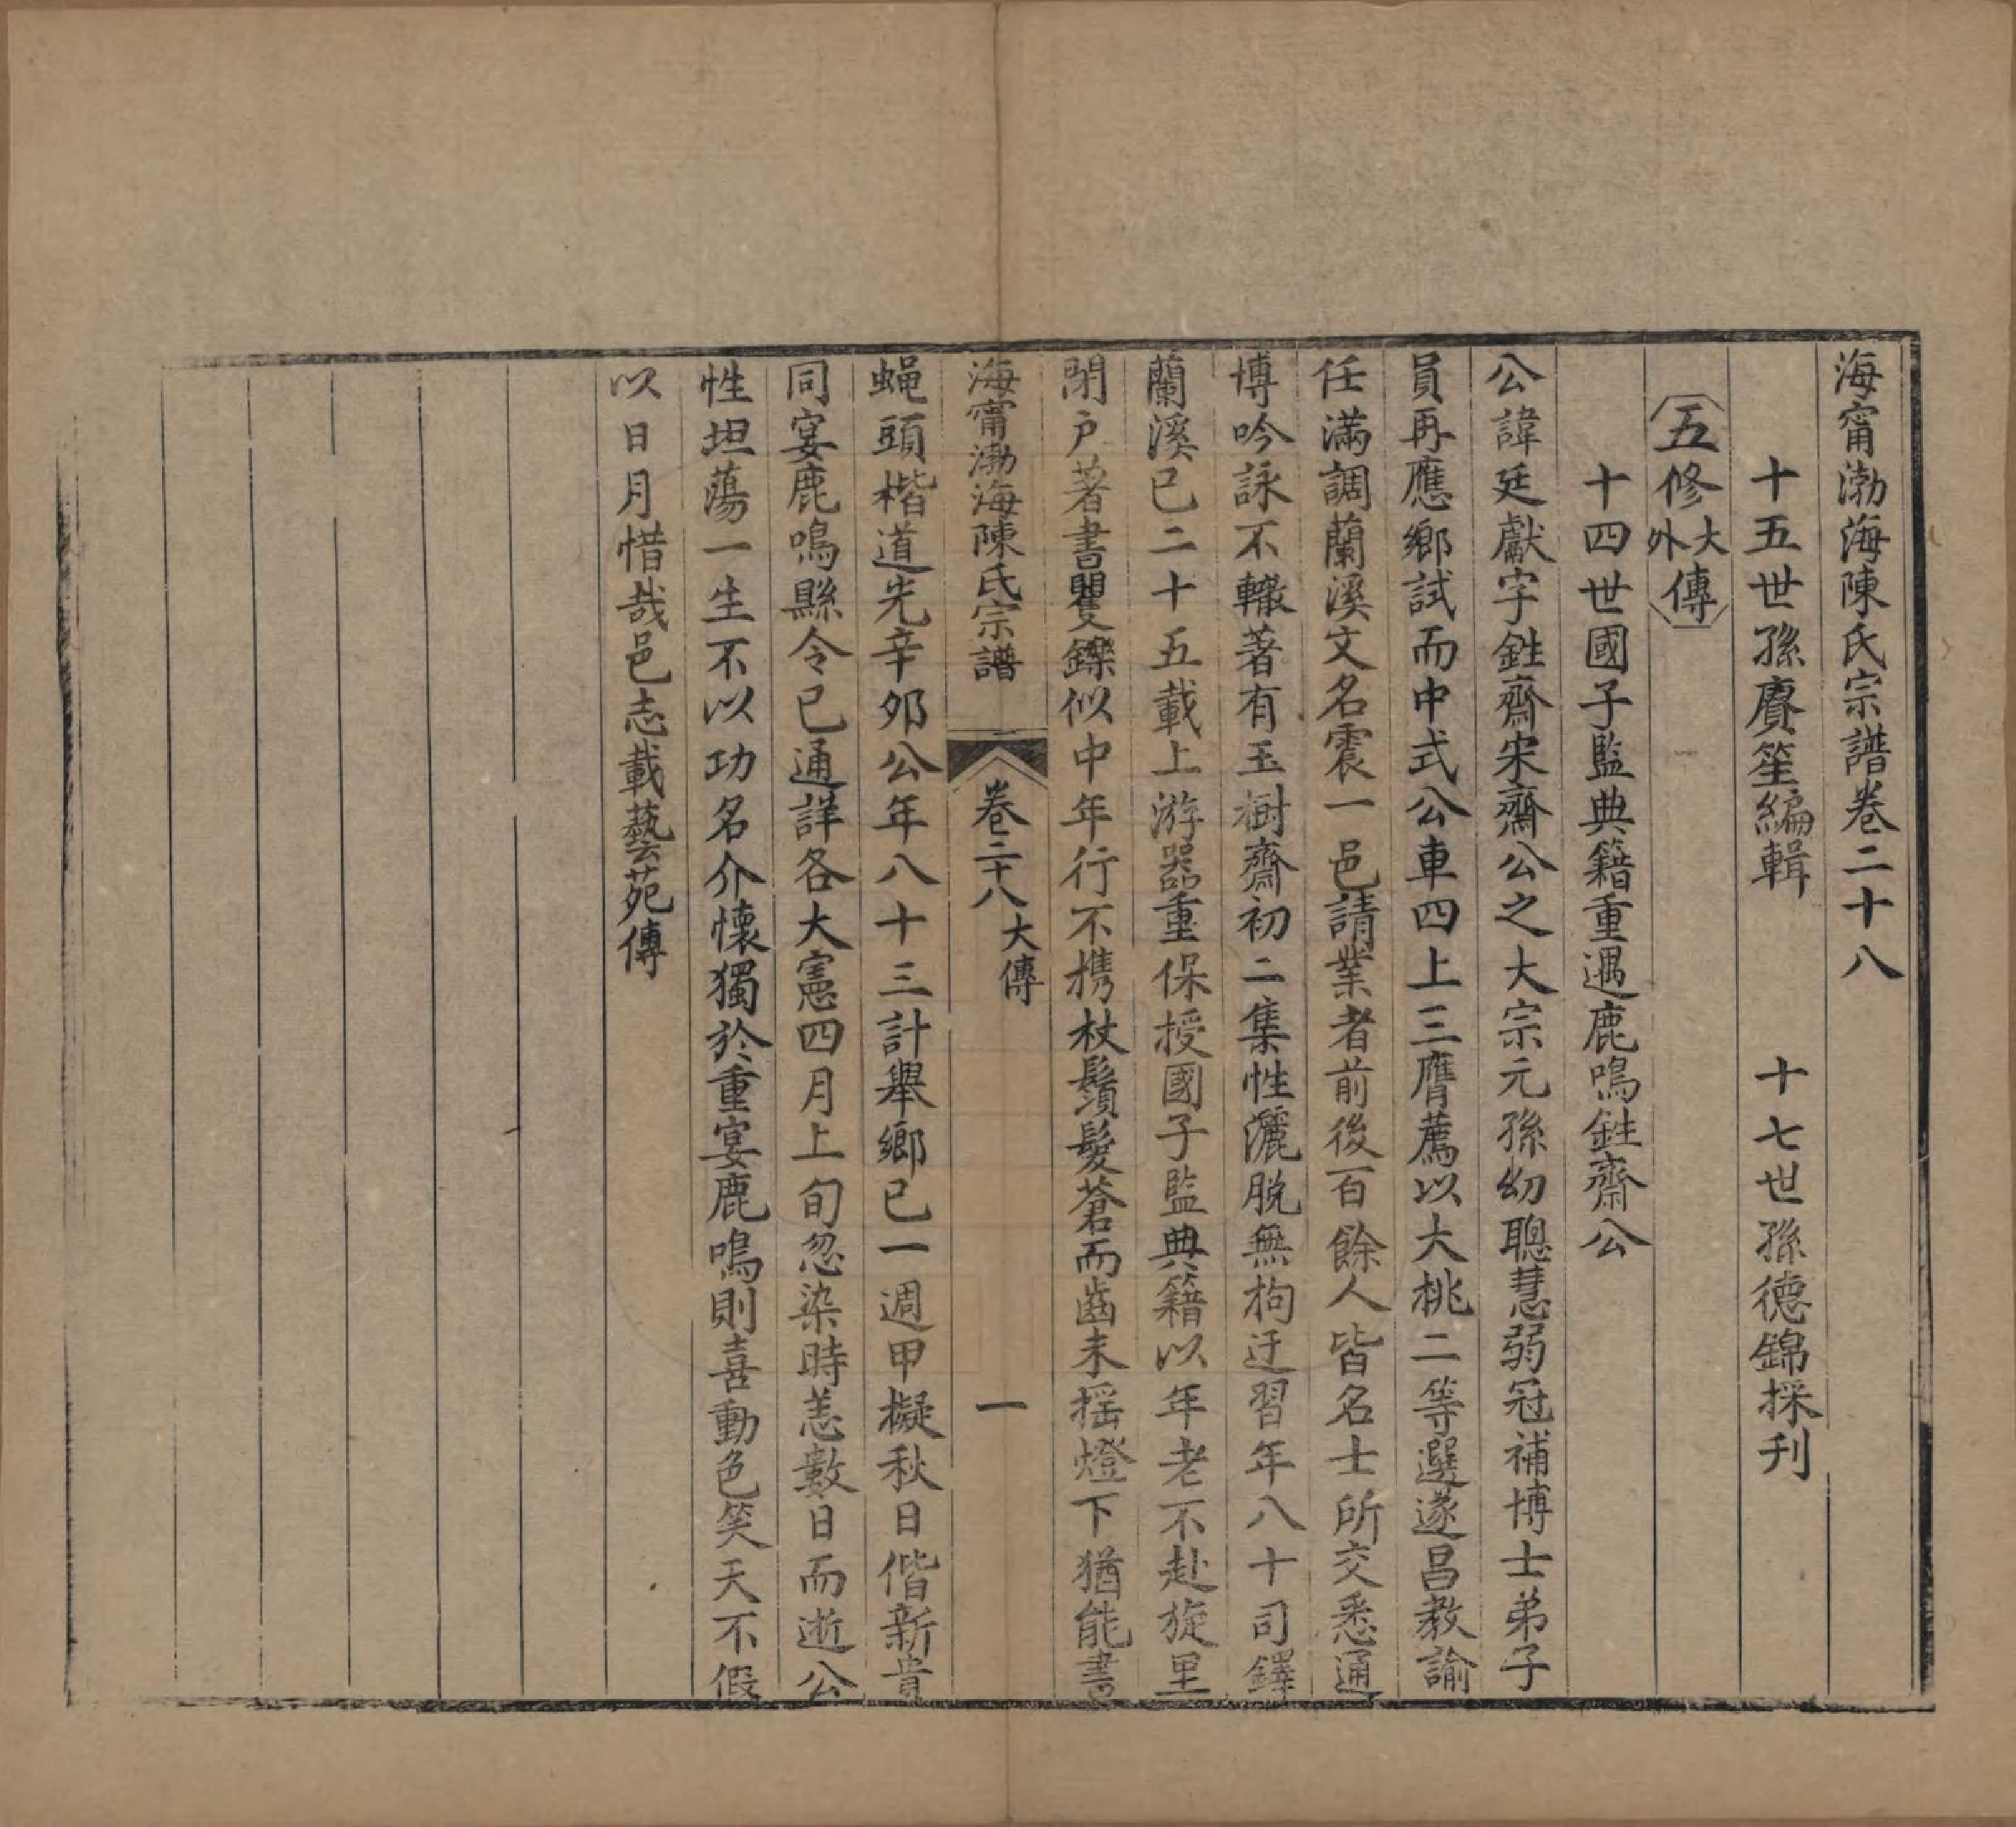 海甯渤海陳氏宗譜卷二十八
十五世孫賡笙編輯　十七世孫德錦採刋
五修大外傳
十四世國子監典籍重遇鹿鳴鉎齋公
公諱廷獻字鉎齋宋齋公之大宗元孫幼聰慧弱冠補博士弟子
員再應鄉試而中式公車四上三膺薦以大桃二等選遂昌教諭
任滿調蘭溪文名震一邑請業者前後百餘人皆名士所交悉通
博吟詠不輟著有玉樹齋初二集性灑脫無拘迂習年八十司鐸
蘭溪已二十五載上游器重保授國子監典籍以年老不赴旋里
閉户著書矍鑠似中年行不携杖鬚髮蒼而齒未摇燈下猶能書
海甯渤海陳氏宗譜　卷二十八　大傳　一
蝇頭楷道光辛夘公年八十三計舉鄉已一週甲擬秋日偕新貴
同宴鹿鳴縣令已通詳各大憲四月上旬忽染時恙數日而逝公
性坦蕩一生不以功名介懷獨於重宴鹿鳴則喜動色笑天不假
以日月惜哉邑志載藝苑傳